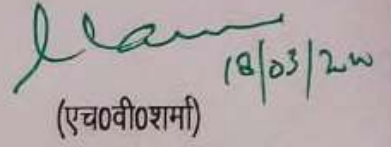 18/03/20
(एच0वी0शर्मा)